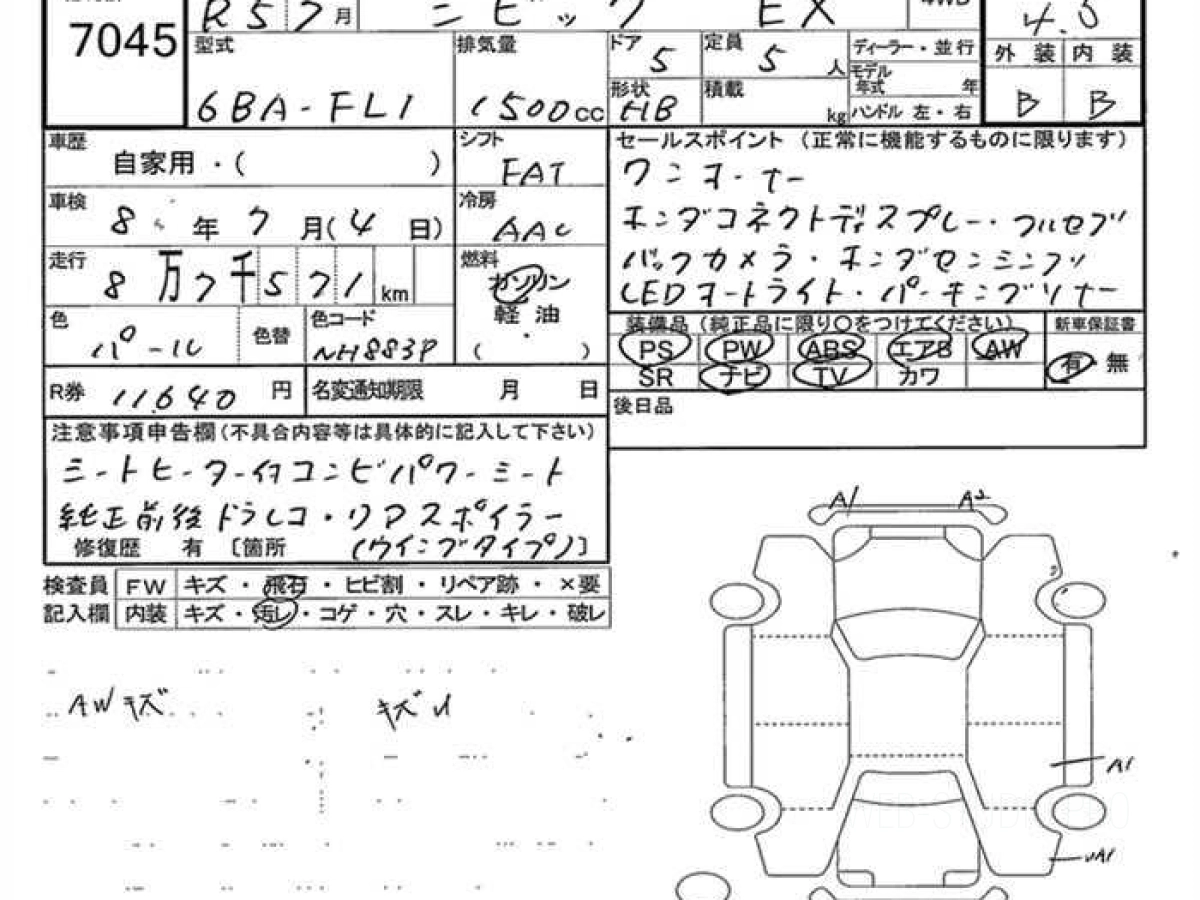 R5 7月 シビック EX 4WD 4.5
7045
型式 排気量 ドア 5 定員 5 人 ディーラー・並行 外装 内装
モデル年式 年
6BA-FL1 1500cc 形状 HB 積載 kg ハンドル 左・右 B B
車歴 自家用・( ) シフト FAT セールスポイント (正常に機能するものに限ります)
ワンオーナー
車検 8年 7月(4日) 冷房 AAC ホンダコネクトディスプレー・フルセグ
走行 8万7千571km 燃料 ガソリン バックカメラ・ホンダセンシング
軽油 ( ) LEDオートライト・パーキングソナー
色 パール 色替 色コード NH883P 装備品 (純正品に限り○をつけてください) 新車保証書
PS PW ABS エアB AW 有・無
SR ナビ TV カワ
R券 11,640円 名変通知期限 月 日 後日品
注意事項申告欄(不具合内容等は具体的に記入して下さい)
シートヒーター付コンビパワーシート
純正前後ドラレコ・リアスポイラー
修復歴 有 〔箇所 (ウイングタイプ)〕
検査員 FW キズ・飛石・ヒビ割・リペア跡・×要
記入欄 内装 キズ・汚レ・コゲ・穴・スレ・キレ・破レ
A1 A2
AWキズ キズU
A1
UA1